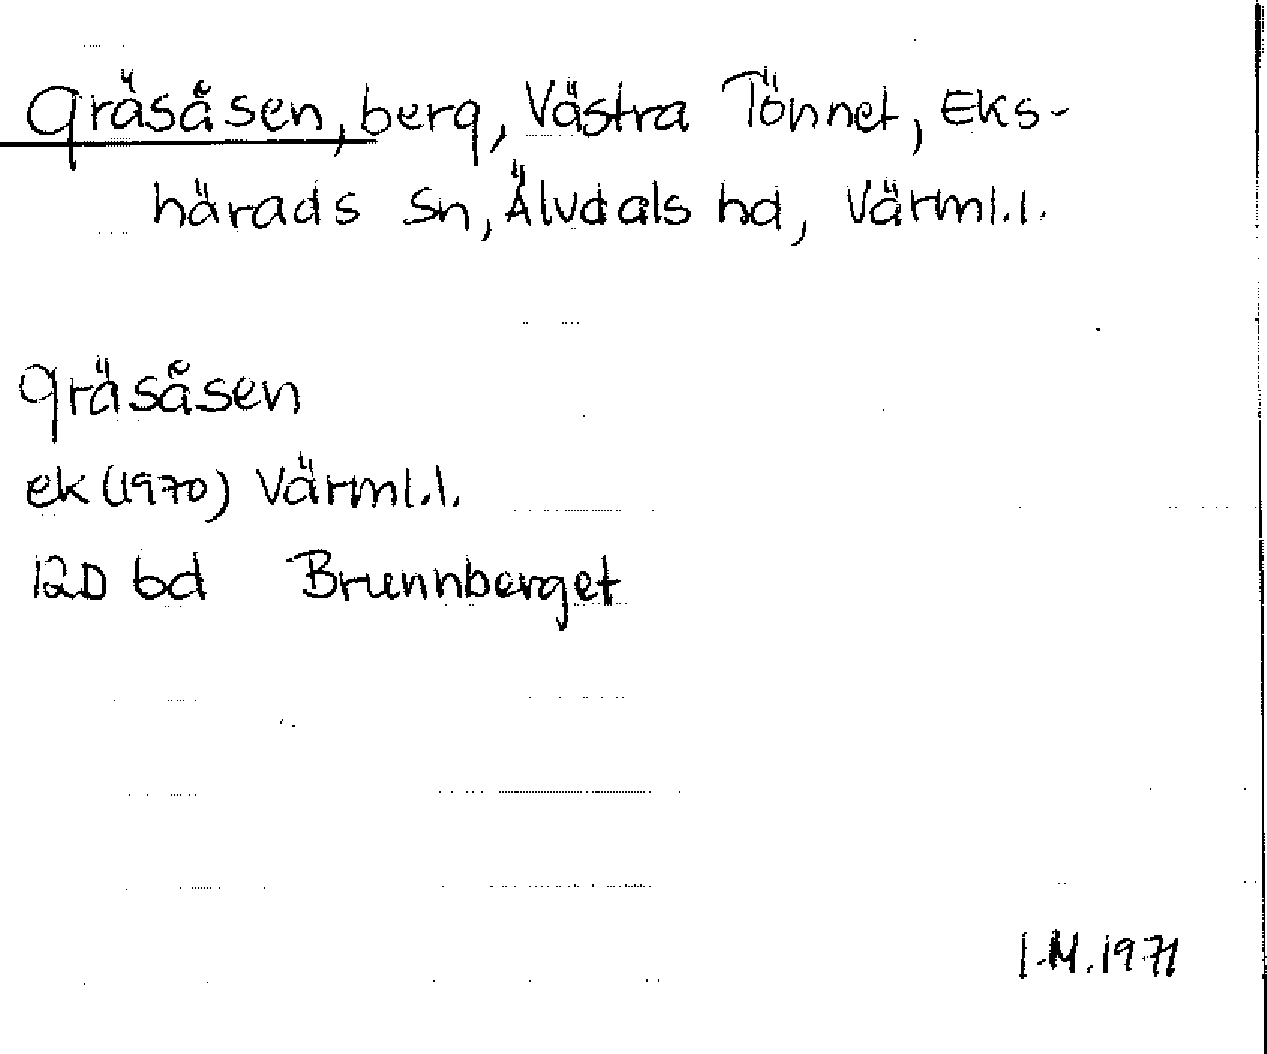 Gräsåsen, berg, Västra Tönnet, Eks-
härads sn, Älvdals hd, Värml.l.
Gräsåsen
ek (1970) Värml.l.
12D bd Brunnberget
I.M. 1971